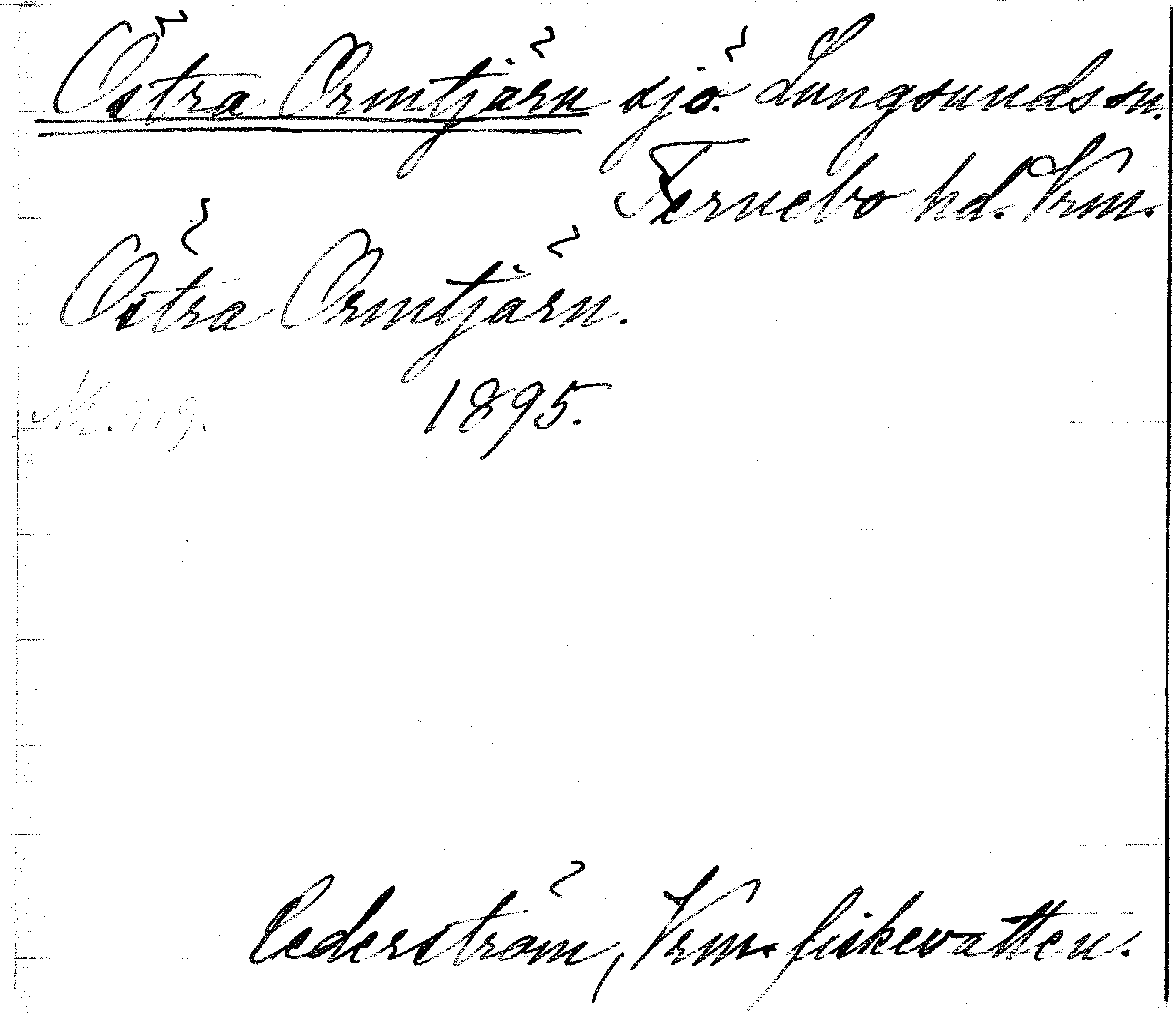 Östra Ormtjärn sjö. Lungsunds sn.
Fernebo hd. Vrm.
Östra Ormtjärn.
1895.
Cederström, Vrm. fiskevatten.